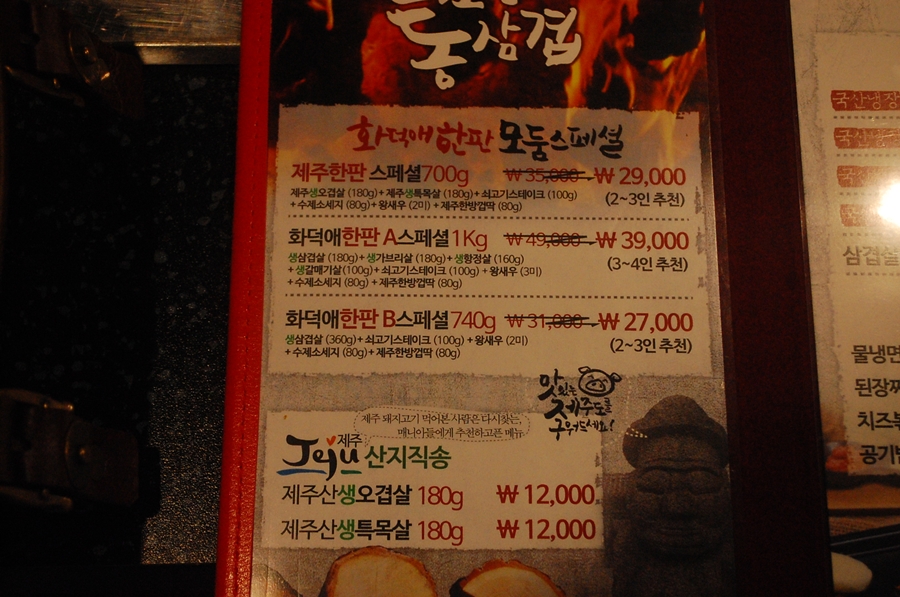 통삼겹
화덕애한판 모둠스페셜
제주한판 스페셜700g ₩35,000 ₩29,000
제주생오겹살 (180g)+제주생특목살 (180g)+쇠고기스테이크 (100g)
+수제소세지 (80g)+왕새우 (2미)+제주한방껍딱 (80g)
(2~3인 추천)
화덕애한판 A스페셜1Kg ₩49,000 ₩39,000
생삼겹살 (180g)+생가브리살 (180g)+생항정살 (160g)
+생갈매기살(100g)+쇠고기스테이크 (100g)+왕새우 (3미)
+수제소세지 (80g)+제주한방껍딱 (80g)
(3~4인 추천)
화덕애한판 B스페셜740g ₩31,000 ₩27,000
생삼겹살 (360g)+쇠고기스테이크 (100g)+왕새우 (2미)
+수제소세지 (80g)+제주한방껍딱 (80g)
(2~3인 추천)
맛있는
제주도를
구워드세요!
제주 돼지고기 먹어본 사람은 다시찾는,
매니아들에게 추천하고픈 메뉴
Jeju 제주 산지직송
제주산생오겹살 180g ₩12,000
제주산생특목살 180g ₩12,000
국산냉장
삼겹살
물냉면
된장찌
치즈
공기